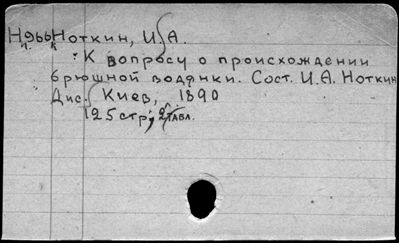 Н966 Ноткин, И. А.
К вопросу о происхождении
брюшной водянки. Сост. И.А. Ноткин
Дис. Киев, 1890
125 стр; 2 табл.